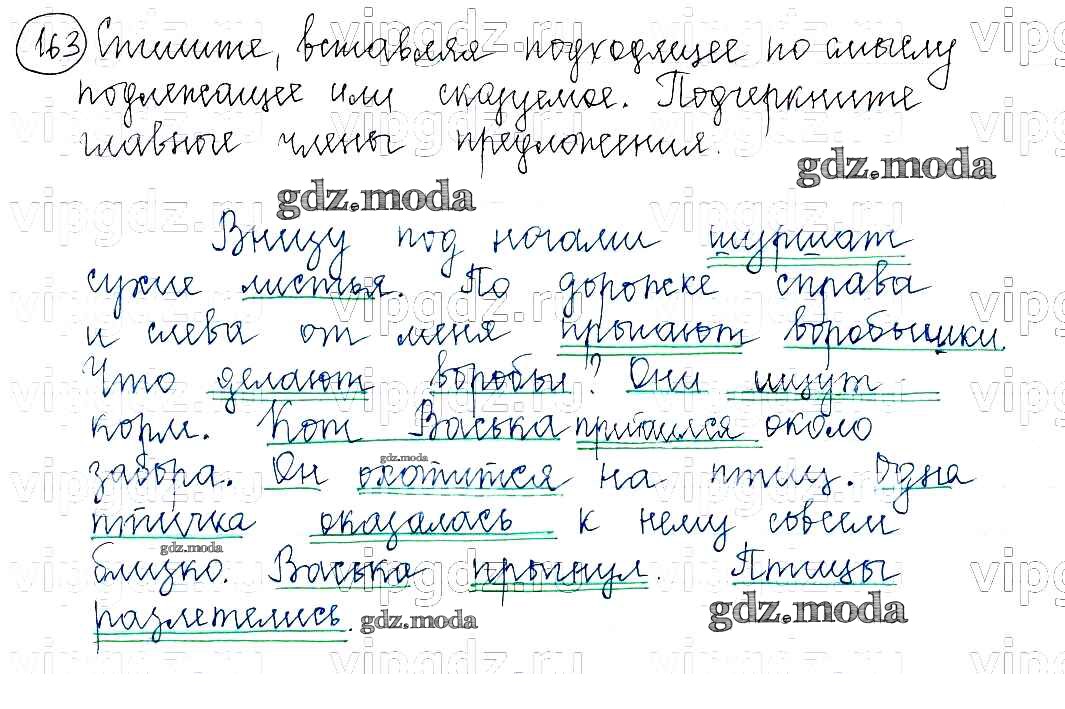 163 Спишите, вставляя подходящее по смыслу
подлежащее или сказуемое. Подчеркните
главные члены предложения.
gdz.moda
gdz.moda
Внизу под ногами шуршат
сухие листья. По дорожке справа
и слева от меня прыгают воробьишки.
Что делают воробьи? Они ищут
корм. Кот Васька притаился около
gdz.moda
забора. Он охотится на птиц. Одна
птичка оказалась к нему совсем
gdz.moda
близко. Васька прыгнул. Птицы
разлетелись.
gdz.moda
gdz.moda
vipgdz.ru